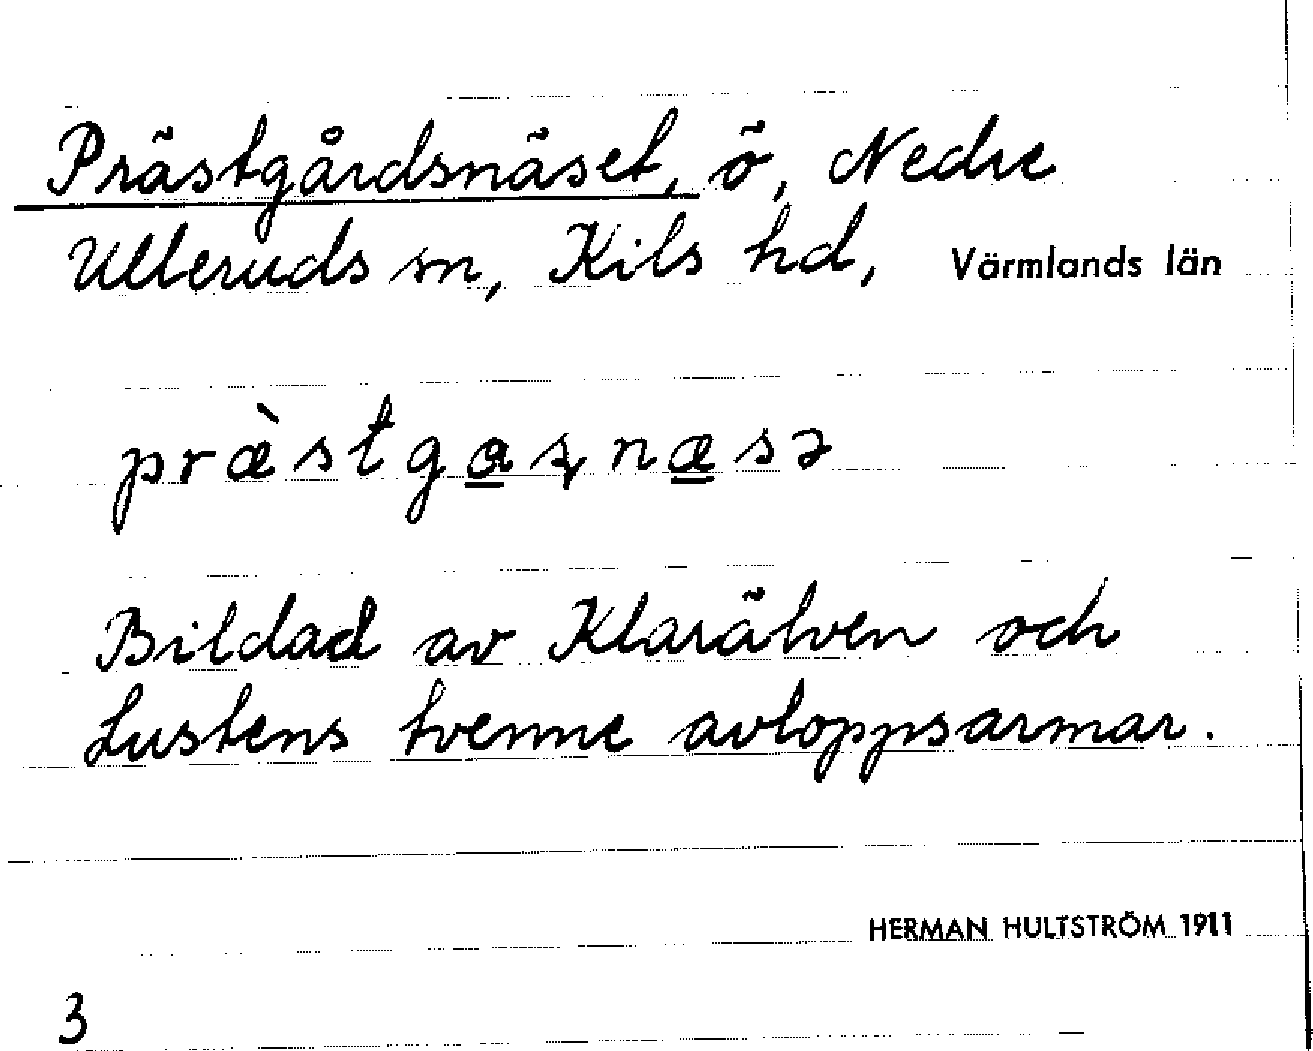 Prästgårdsnäset, ö, Nedre
Ulleruds sn, Kils hd, Värmlands län
præ̀stgaʂnæsə
Bildad av Klarälven och
Lustens tvenne avloppsarmar.
HERMAN HULTSTRÖM 1911
3